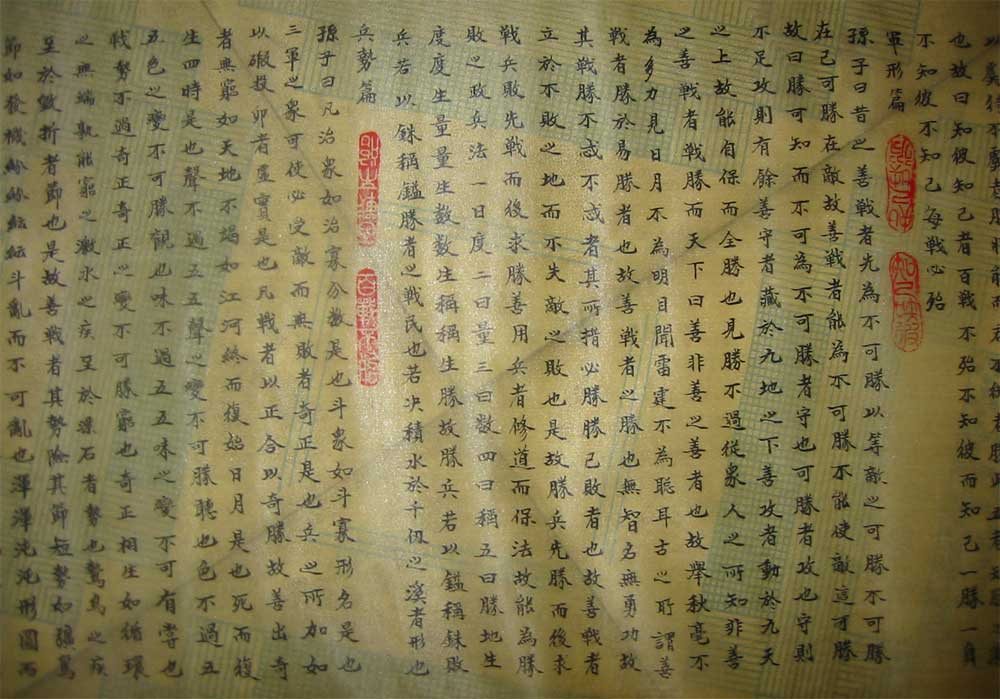 也故曰知彼知己者百戰不殆不知彼而知己一勝一負
不知彼不知己每戰必殆
軍形篇
孫子曰昔之善戰者先為不可勝以等敵之可勝不可勝
在己可勝在敵故善戰者能為不可勝不能使敵這可勝
故曰勝可知而不可為不可勝者守也可勝者攻也守則
不足攻則有餘善守者藏於九地之下善攻者動於九天
之上故能自保而全勝也見勝不過從衆人之所知非善
之善戰者戰勝而天下曰善非善之善者也故舉秋毫不
為多力見日月不為明目聞雷霆不為聡耳古之所謂善
戰者勝於易勝者也故善戰者之勝也無智名無勇功故
其戰勝不忒不忒者其所措必勝勝己敗者也故善戰者
立於不敗之地而不失敵之敗也是故勝兵先勝而後求
戰兵敗先戰而後求勝善用兵者修道而保法故能為勝
敗之政兵法一曰度二曰量三曰数四曰稱五曰勝地生
度度生量量生数数生稱稱生勝故勝兵若以鎰稱銖敗
兵若以銖稱鎰勝者之戰民也若决積水於千仞之溪者形也
兵勢篇
百戰不殆
孫子曰凡治衆如治寡分数是也斗衆如斗寡形名是也
三軍之衆可使必受敵而無敗者奇正是也兵之所加如
以碫投卵者虛實是也凡戰者以正合以奇勝故善出奇
者無窮如天地不竭如江河終而復始日月是也死而復
生四時是也聲不過五五聲之變不可勝聽也色不過五
五色之變不可勝觀也味不過五五味之變不可有嘗也
戰勢不過奇正奇正之變不可勝窮也奇正相生如循環
之無端孰能窮之激水之疾至於漂石者勢也鷙鳥之疾
至於毀折者節也是故善戰者其勢險其節短勢如彍弩
節如發機紛紛紜紜斗亂而不可亂也渾渾沌沌形圓而